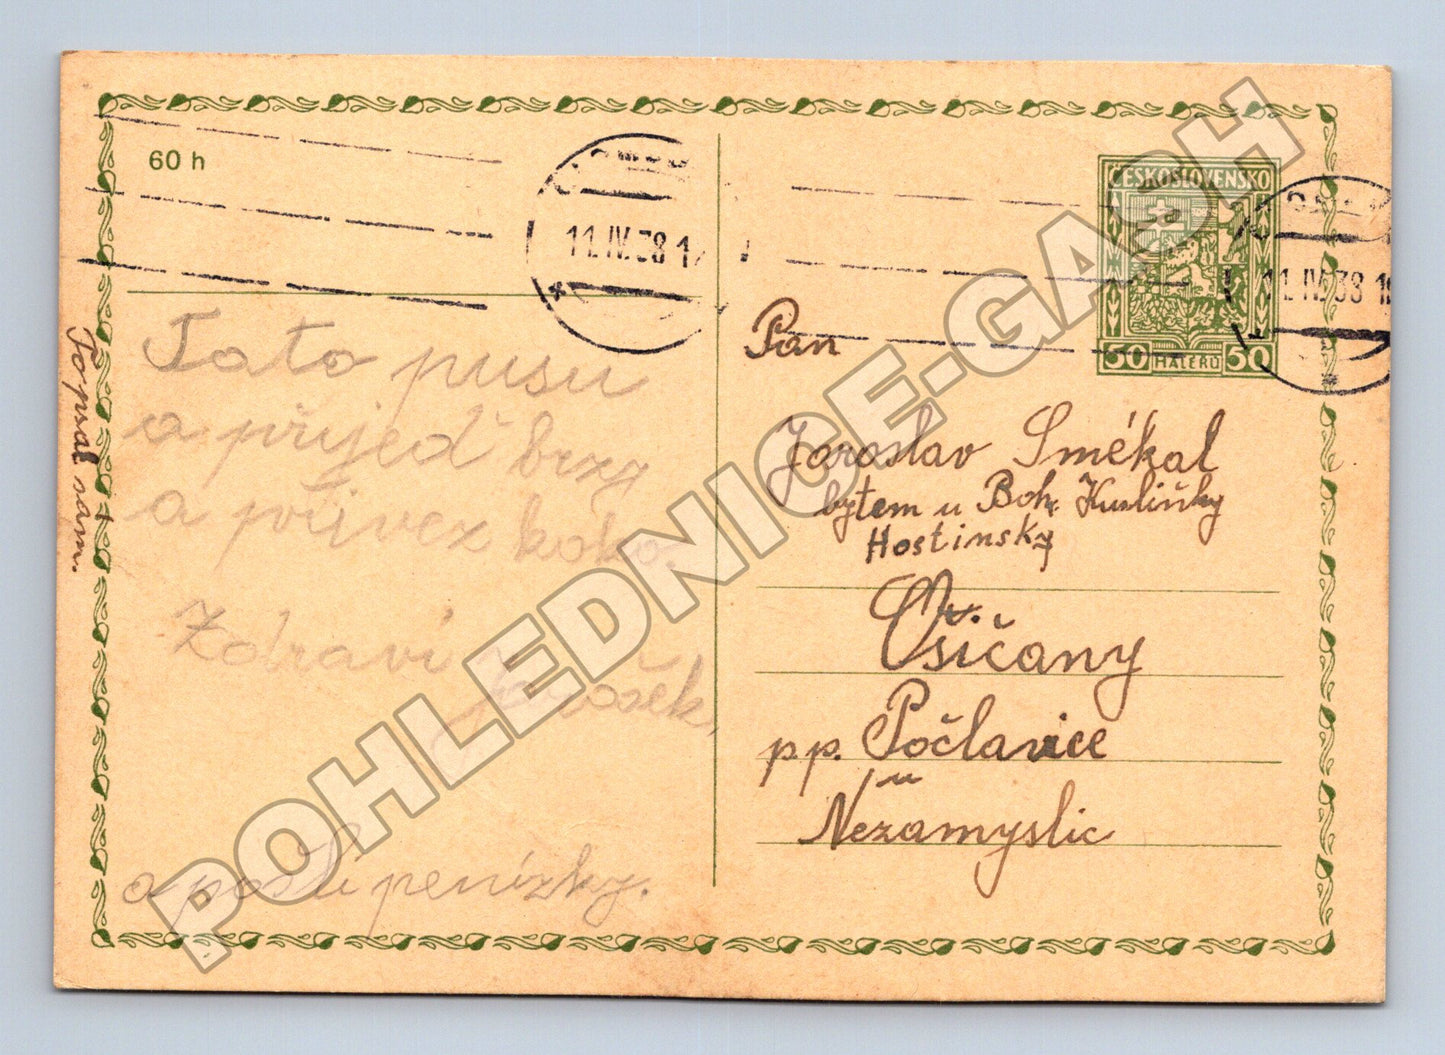 60 h
11.IV.38
ČESKOSLOVENSKO
50 HALÉŘŮ 50
11.IV.38
Tato pusu
a přijeď brzy
a přivez koko.
Zdraví Jarošek,
a pošli penízky.
To psal sám.
Pan
Jaroslav Smékal
bytem u Boh.
Hostinský
Ošíčany
pp. Počlavice
u
Nezamyslic
POHLEDNICE-GASH